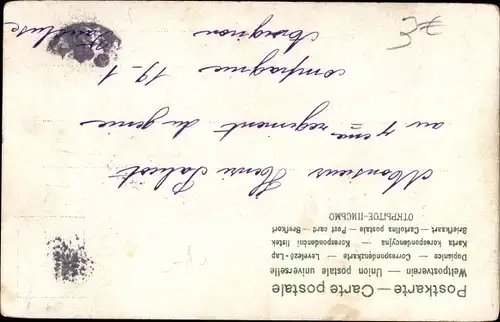 Postkarte — Carte postale
Weltpostverein — Union postale universelle
Dopisnice — Correspondenzkarte — Levelező-Lap
Karta korespondencyjna — Korespondenční lístek
Briefkaart — Cartolina postale — Post card — Brefkort
ОТКРЫТОЕ-ПИСЬМО
Monsieur Henri
au 7eme regiment du genie
compagnie 19-1
Avignon
Vaucluse